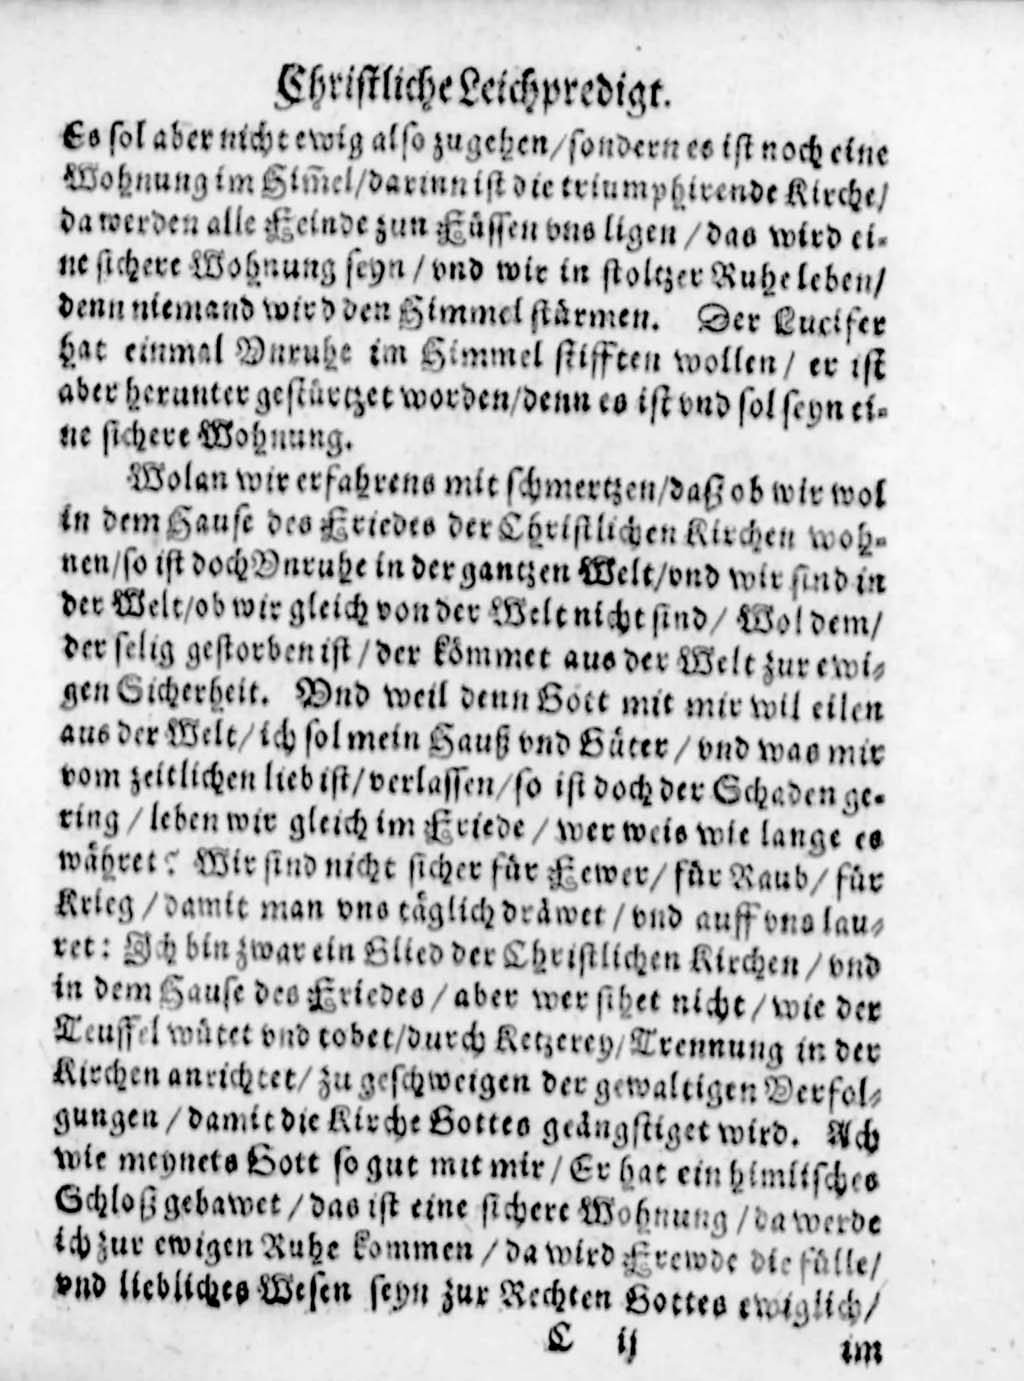 Christliche Leichpredigt.
Es sol aber nicht ewig also zugehen/sondern es ist noch eine
Wohnung im Him̃el/darinn ist die triumphirende Kirche/
da werden alle Feinde zun Füssen vns ligen/das wird ei-
ne sichere Wohnung seyn/vnd wir in stoltzer Ruhe leben/
denn niemand wird den Himmel stürmen. Der Lucifer
hat einmal Vnruhe im Himmel stifften wollen/ er ist
aber herunter gestürtzet worden/denn es ist vnd sol seyn ei-
ne sichere Wohnung.
Wolan wir erfahrens mit schmertzen/daß ob wir wol
in dem Hause des Friedes der Christlichen Kirchen woh-
nen/so ist doch Vnruhe in der gantzen Welt/vnd wir sind in
der Welt/ob wir gleich von der Welt nicht sind/ Wol dem/
der selig gestorben ist/der kömmet aus der Welt zur ewi-
gen Sicherheit. Vnd weil denn Gott mit mir wil eilen
aus der Welt/ich sol mein Hauß vnd Güter/vnd was mir
vom zeitlichen lieb ist/verlassen/so ist doch der Schaden ge-
ring/leben wir gleich im Friede/wer weis wie lange es
währet? Wir sind nicht sicher für Fewer/für Raub/für
Krieg/damit man vns täglich dräwet/vnd auff vns lau-
ret: Ich bin zwar ein Glied der Christlichen Kirchen/vnd
in dem Hause des Friedes/aber wer sihet nicht/wie der
Teuffel wütet vnd tobet/durch Ketzerey/Trennung in der
Kirchen anrichtet/zu geschweigen der gewaltigen Verfol-
gungen/damit die Kirche Gottes geängstiget wird. Ach
wie meynets Gott so gut mit mir/Er hat ein himlisches
Schloß gebawet/das ist eine sichere Wohnung/da werde
ich zur ewigen Ruhe kommen/da wird Frewde die fülle/
vnd liebliches Wesen seyn zur Rechten Gottes ewiglich/
C ij
im